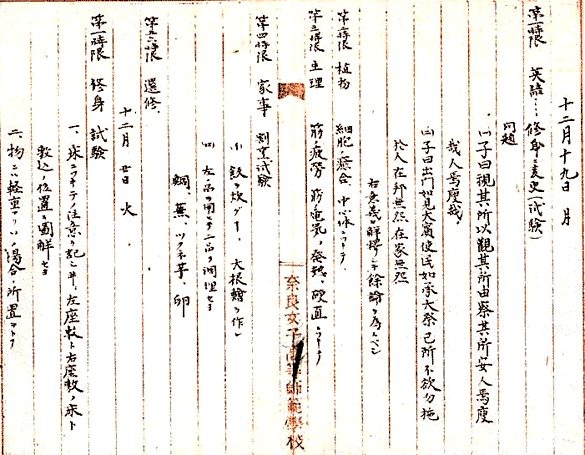 十二月十九日 月
第一時限 英語…修身ト変更(試験)
問題
(一)子曰視其所以觀其所由察其所安人焉廋
哉人焉廋哉
(二)子曰出門如見大賓使民如承大祭己所不欲勿施
於人在邦無怨在家無怨
右意義ヲ解釋シ其餘論ヲ為スベシ
第二時限 植物 細胞ノ癒合、中心体ニツキテ
第三時限 生理 筋ノ疲勞 筋ノ電氣ノ發現、硬直ニツキテ
第四時限 家事 割烹試験
飯ヲ炊グ 大根鱠ヲ作レ
左ノ品ヲ用ヰテ二品ヲ調理セヨ
鯛、蕪、ツクネ芋、卵
第五六時限 選修
十二月 廿日 火
第一時限 修身 試験
一、床ニツキテノ注意ヲ記シ、左座敷ト右座敷ノ床ト
敷込ノ位置ヲ圖解セヨ
二、物ニハ軽重アリ 場合ノ所置
奈良女子高等師範學校